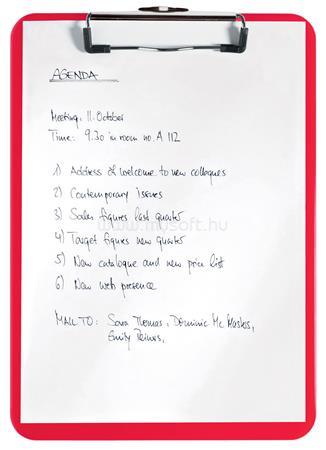 AGENDA
Meeting: 11. October
Time: 9.30 in room no. A 112
1) Address of welcome to new colleques
2) Contemporary issues
3) Sales figures last quarter
www.mysoft.hu
4) Target figures new quarter
5) New catalogue and new price list
6) New web presence
MAIL TO: Sara Thomas, Dominic Mc
Emily